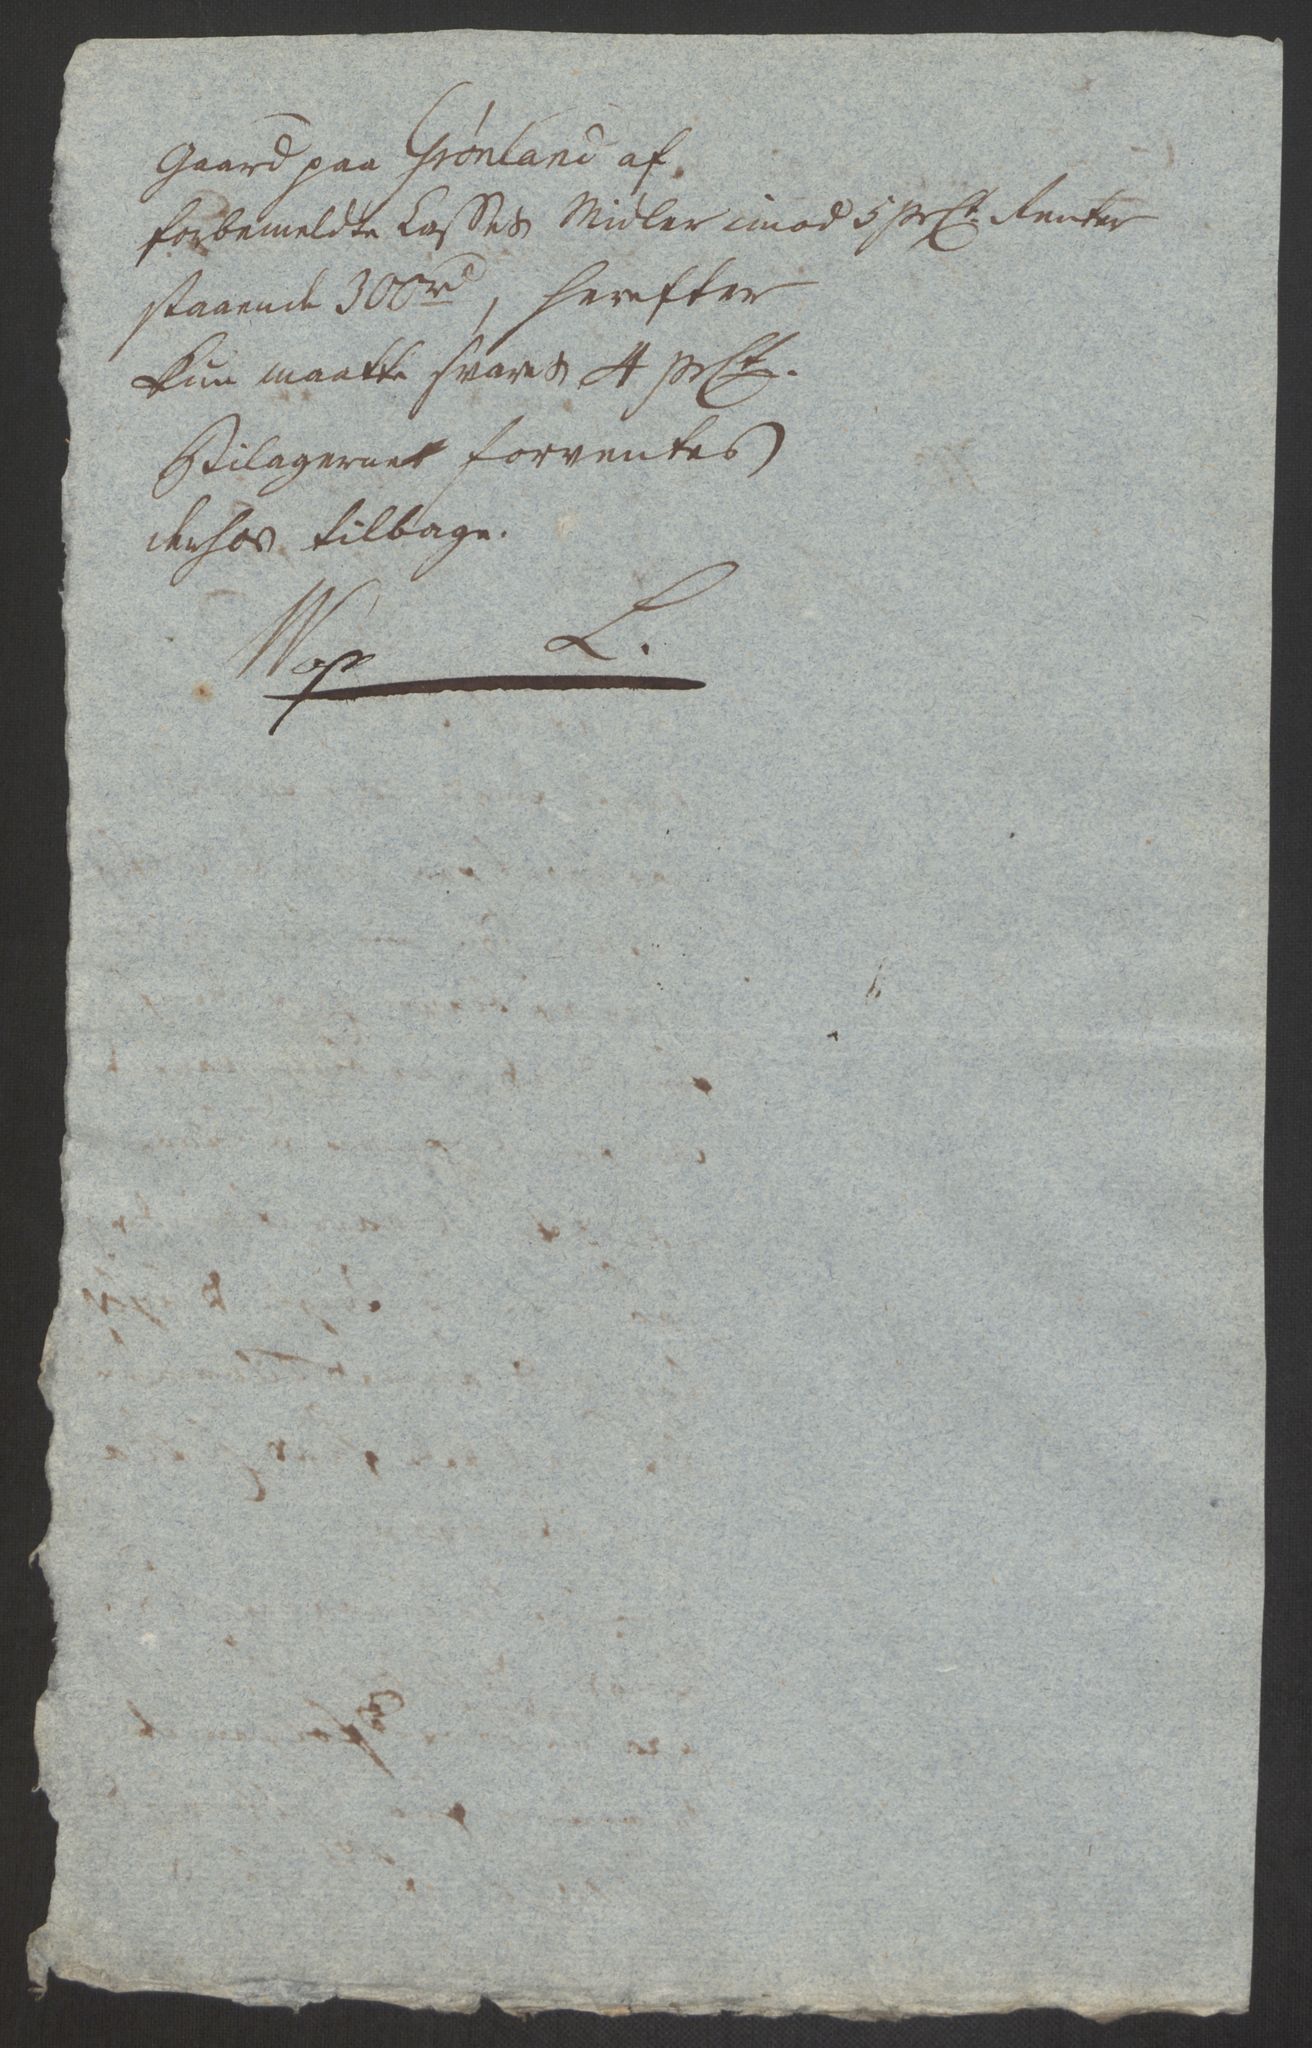 Gaard paa Grønland af
forbemeldte Casses Midler imod 5 prCt. Renter
staaende 300 rd, herefter
kun maatte svares 4 prCt.
Bilagerne forventes
derhos tilbage.
L.